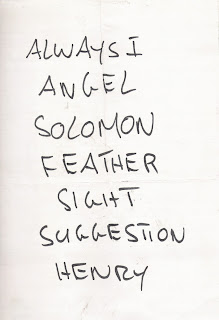 ALWAYS I
ANGEL
SOLOMON
FEATHER
SIGHT
SUGGESTION
HENRY